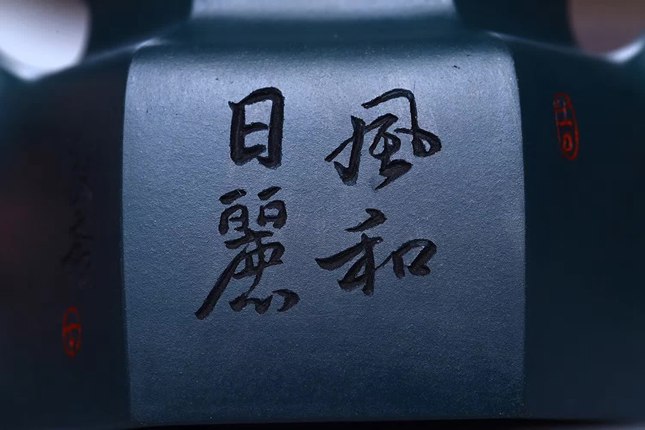 風和
日麗